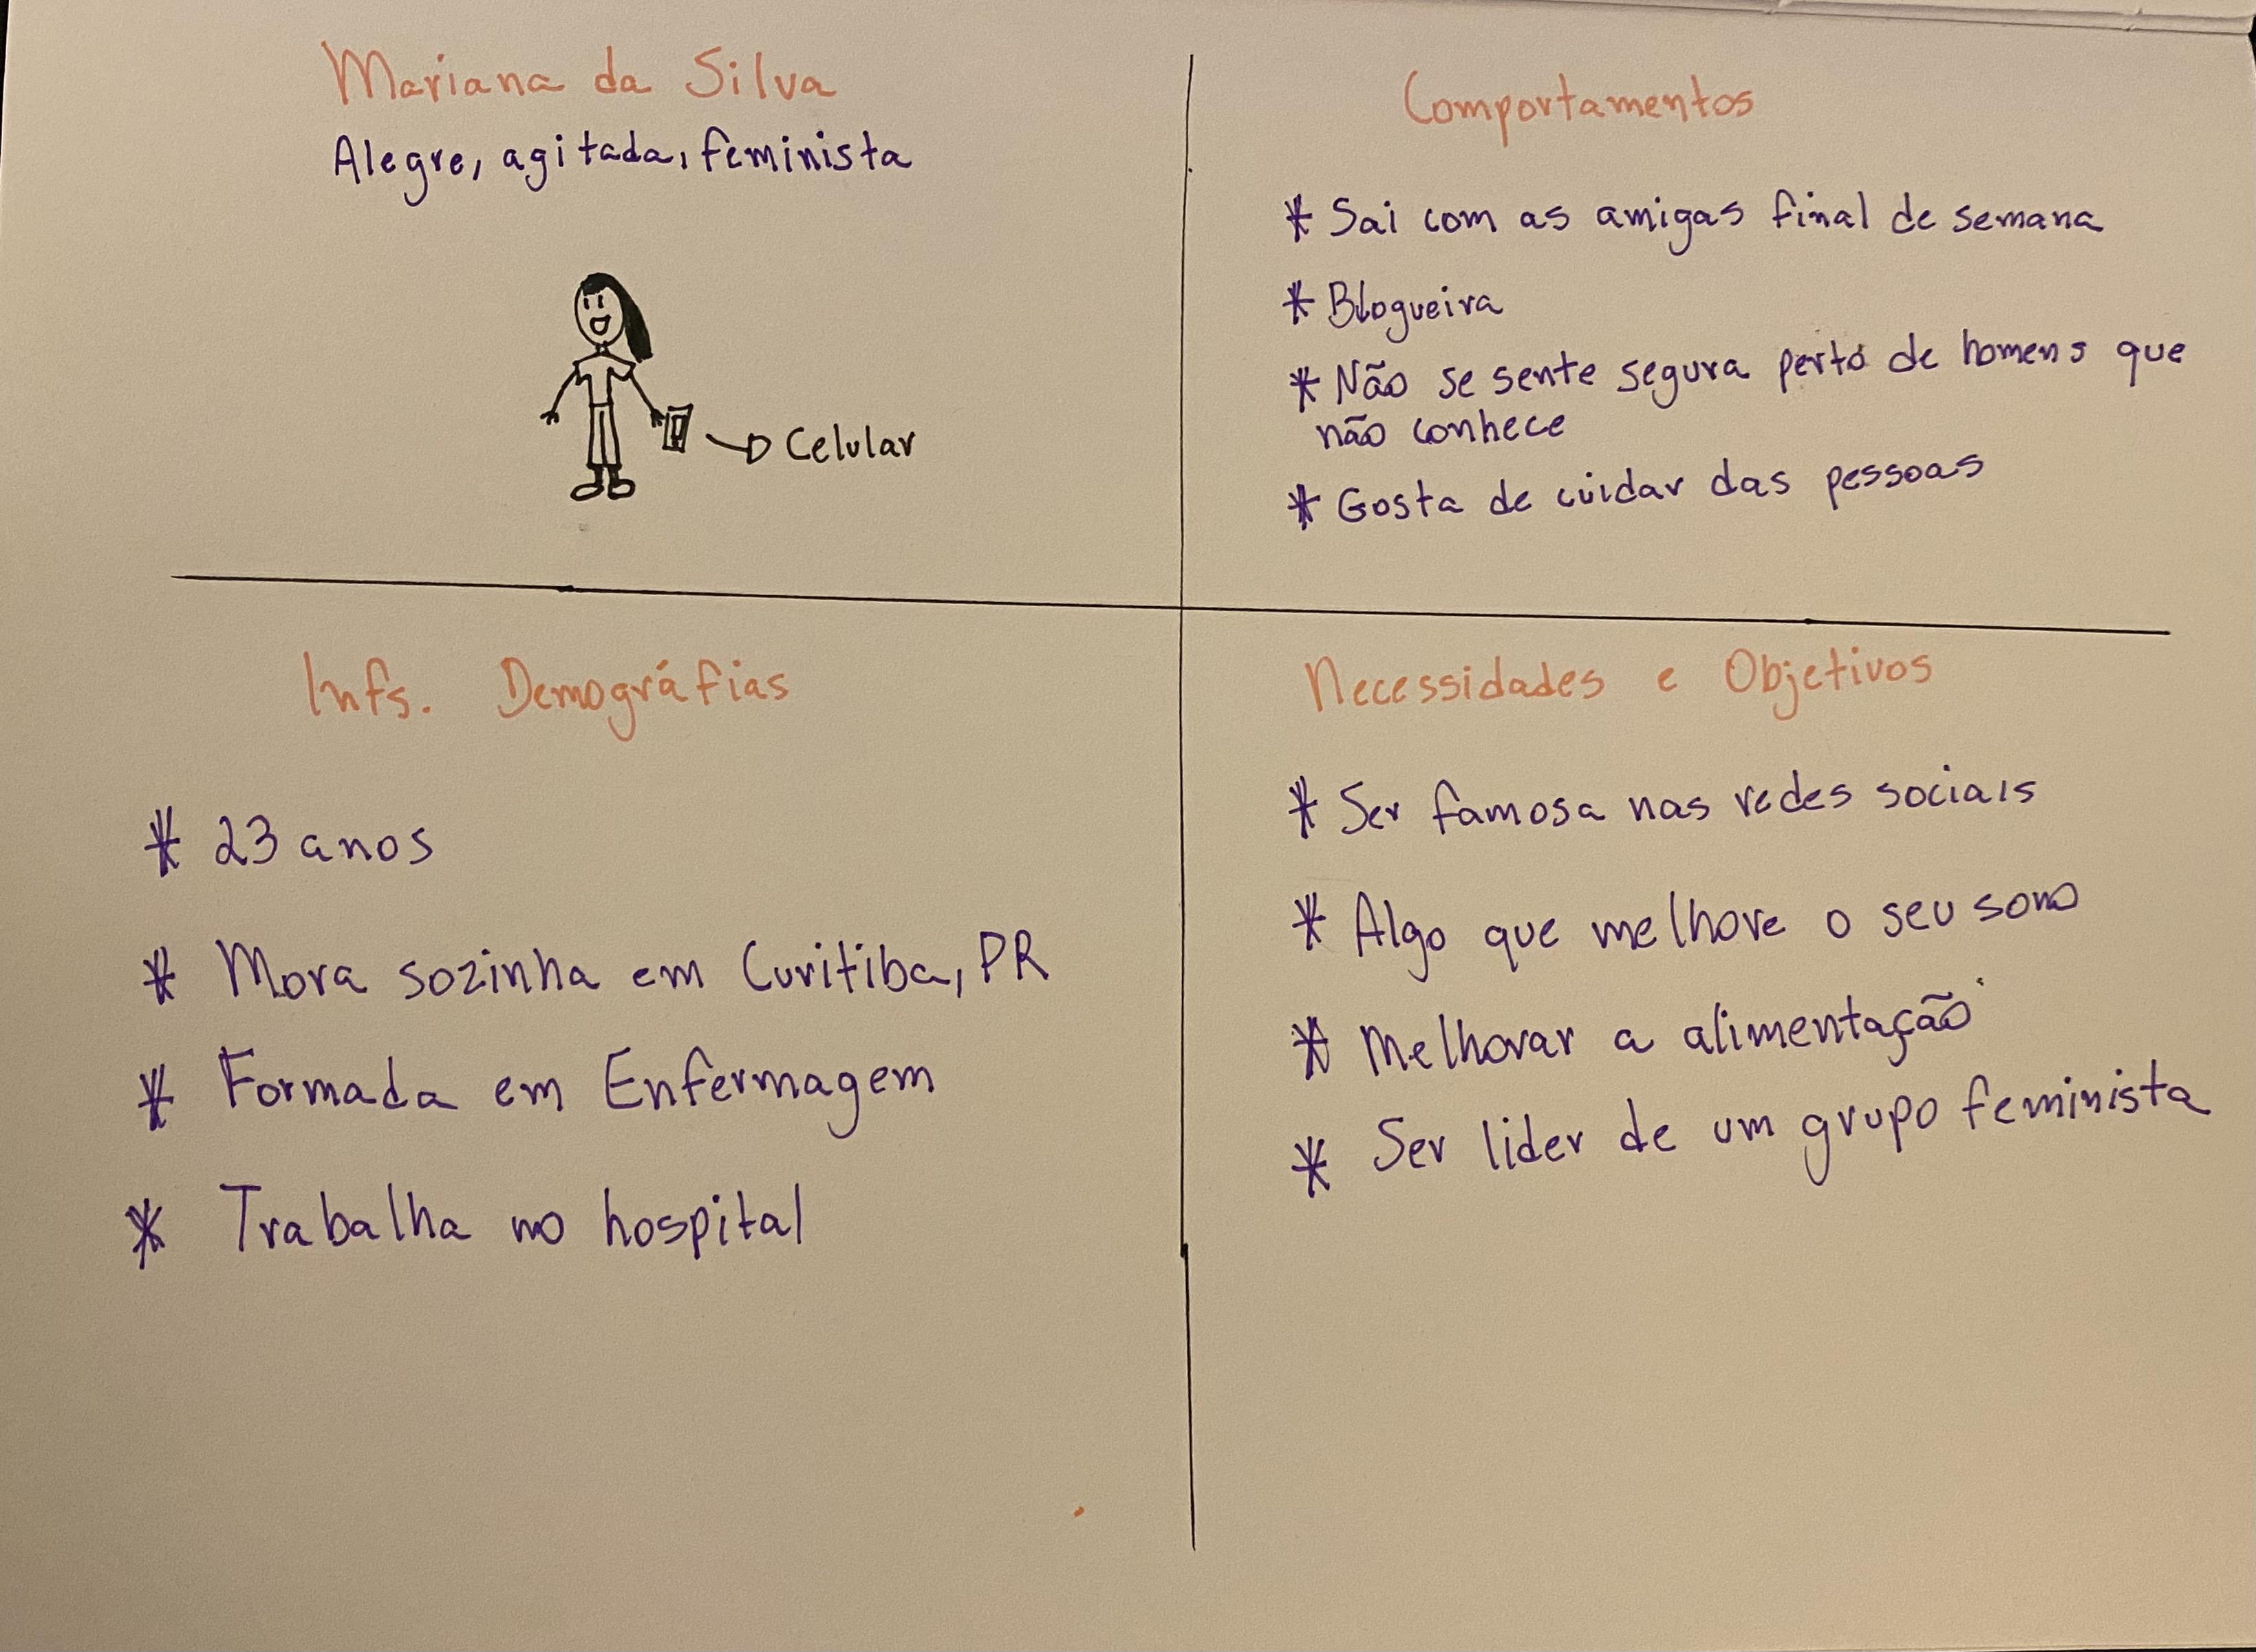 Mariana da Silva
Alegre, agitada, feminista
Celular
Comportamentos
* Sai com as amigas final de semana
* Blogueira
* Não se sente segura perto de homens que
não conhece
* Gosta de cuidar das pessoas
Infs. Demográfias
* 23 anos
* Mora sozinha em Curitiba, PR
* Formada em Enfermagem
* Trabalha no hospital
Necessidades e Objetivos
* Ser famosa nas redes sociais
* Algo que melhore o seu sono
* Melhorar a alimentação
* Ser lider de um grupo feminista